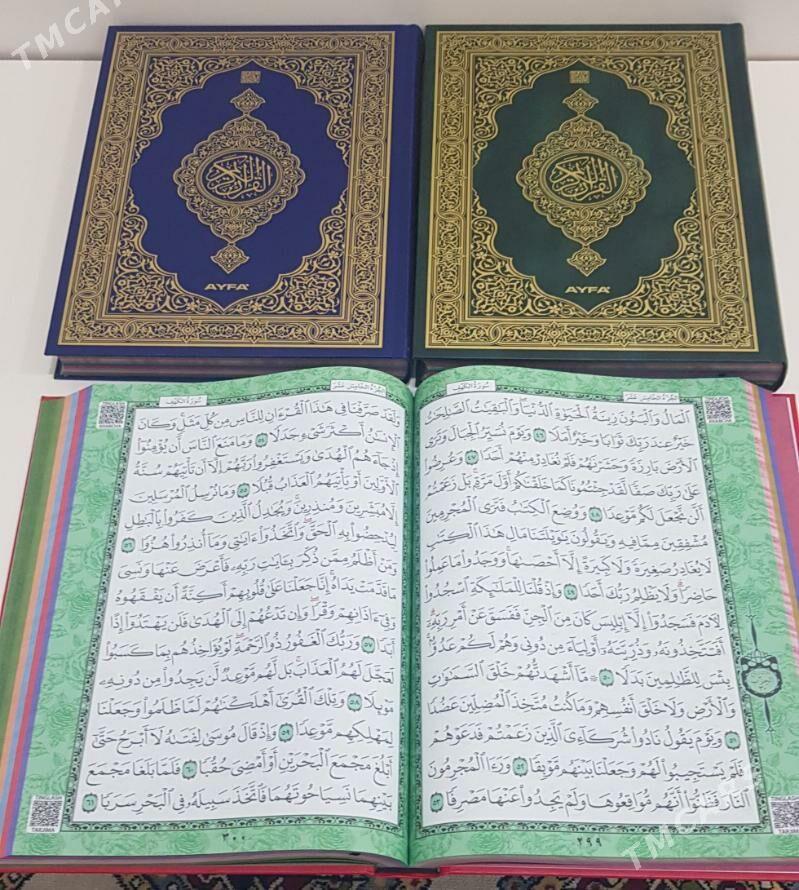 TMCARS
القرآن الكريم
AYFA
القرآن الكريم
AYFA
سورة الكهف
الجزء الخامس عشر
الْمَالُ وَالْبَنُونَ زِينَةُ الْحَيَوٰةِ الدُّنْيَا وَالْبَٰقِيَٰتُ الصَّٰلِحَٰتُ
خَيْرٌ عِندَ رَبِّكَ ثَوَابًا وَخَيْرٌ أَمَلًا ٤٦ وَيَوْمَ نُسَيِّرُ الْجِبَالَ وَتَرَى
الْأَرْضَ بَارِزَةً وَحَشَرْنَٰهُمْ فَلَمْ نُغَادِرْ مِنْهُمْ أَحَدًا ٤٧ وَعُرِضُوا
عَلَىٰ رَبِّكَ صَفًّا لَّقَدْ جِئْتُمُونَا كَمَا خَلَقْنَٰكُمْ أَوَّلَ مَرَّةٍ بَلْ زَعَمْتُمْ
أَلَّن نَّجْعَلَ لَكُم مَّوْعِدًا ٤٨ وَوُضِعَ الْكِتَٰبُ فَتَرَى الْمُجْرِمِينَ
مُشْفِقِينَ مِمَّا فِيهِ وَيَقُولُونَ يَٰوَيْلَتَنَا مَالِ هَٰذَا الْكِتَٰبِ
لَا يُغَادِرُ صَغِيرَةً وَلَا كَبِيرَةً إِلَّا أَحْصَىٰهَا وَوَجَدُوا مَا عَمِلُوا
حَاضِرًا وَلَا يَظْلِمُ رَبُّكَ أَحَدًا ٤٩ وَإِذْ قُلْنَا لِلْمَلَٰٓئِكَةِ اسْجُدُوا
لِءَادَمَ فَسَجَدُوا إِلَّا إِبْلِيسَ كَانَ مِنَ الْجِنِّ فَفَسَقَ عَنْ أَمْرِ رَبِّهِ
أَفَتَتَّخِذُونَهُ وَذُرِّيَّتَهُ أَوْلِيَآءَ مِن دُونِي وَهُمْ لَكُمْ عَدُوٌّ
بِئْسَ لِلظَّٰلِمِينَ بَدَلًا ٥٠ مَّا أَشْهَدتُّهُمْ خَلْقَ السَّمَٰوَٰتِ
وَالْأَرْضِ وَلَا خَلْقَ أَنفُسِهِمْ وَمَا كُنتُ مُتَّخِذَ الْمُضِلِّينَ عَضُدًا
٥١ وَيَوْمَ يَقُولُ نَادُوا شُرَكَآءِيَ الَّذِينَ زَعَمْتُمْ فَدَعَوْهُمْ
فَلَمْ يَسْتَجِيبُوا لَهُمْ وَجَعَلْنَا بَيْنَهُم مَّوْبِقًا ٥٢ وَرَءَا الْمُجْرِمُونَ
النَّارَ فَظَنُّوا أَنَّهُم مُّوَاقِعُوهَا وَلَمْ يَجِدُوا عَنْهَا مَصْرِفًا ٥٣
٢٩٩
الجزء الخامس عشر
سورة الكهف
وَلَقَدْ صَرَّفْنَا فِي هَٰذَا الْقُرْءَانِ لِلنَّاسِ مِن كُلِّ مَثَلٍ وَكَانَ
الْإِنسَٰنُ أَكْثَرَ شَيْءٍ جَدَلًا ٥٤ وَمَا مَنَعَ النَّاسَ أَن يُؤْمِنُوا
إِذْ جَآءَهُمُ الْهُدَىٰ وَيَسْتَغْفِرُوا رَبَّهُمْ إِلَّا أَن تَأْتِيَهُمْ سُنَّةُ
الْأَوَّلِينَ أَوْ يَأْتِيَهُمُ الْعَذَابُ قُبُلًا ٥٥ وَمَا نُرْسِلُ الْمُرْسَلِينَ
إِلَّا مُبَشِّرِينَ وَمُنذِرِينَ وَيُجَٰدِلُ الَّذِينَ كَفَرُوا بِالْبَٰطِلِ
لِيُدْحِضُوا بِهِ الْحَقَّ وَاتَّخَذُوا ءَايَٰتِي وَمَا أُنذِرُوا هُزُوًا ٥٦
وَمَنْ أَظْلَمُ مِمَّن ذُكِّرَ بِءَايَٰتِ رَبِّهِ فَأَعْرَضَ عَنْهَا وَنَسِيَ
مَا قَدَّمَتْ يَدَاهُ إِنَّا جَعَلْنَا عَلَىٰ قُلُوبِهِمْ أَكِنَّةً أَن يَفْقَهُوهُ
وَفِي ءَاذَانِهِمْ وَقْرًا وَإِن تَدْعُهُمْ إِلَى الْهُدَىٰ فَلَن يَهْتَدُوا إِذًا
أَبَدًا ٥٧ وَرَبُّكَ الْغَفُورُ ذُو الرَّحْمَةِ لَوْ يُؤَاخِذُهُم بِمَا كَسَبُوا
لَعَجَّلَ لَهُمُ الْعَذَابَ بَل لَّهُم مَّوْعِدٌ لَّن يَجِدُوا مِن دُونِهِ
مَوْئِلًا ٥٨ وَتِلْكَ الْقُرَىٰ أَهْلَكْنَٰهُمْ لَمَّا ظَلَمُوا وَجَعَلْنَا
لِمَهْلِكِهِم مَّوْعِدًا ٥٩ وَإِذْ قَالَ مُوسَىٰ لِفَتَىٰهُ لَا أَبْرَحُ حَتَّىٰ
أَبْلُغَ مَجْمَعَ الْبَحْرَيْنِ أَوْ أَمْضِيَ حُقُبًا ٦٠ فَلَمَّا بَلَغَا مَجْمَعَ
بَيْنِهِمَا نَسِيَا حُوتَهُمَا فَاتَّخَذَ سَبِيلَهُ فِي الْبَحْرِ سَرَبًا ٦١
TARJIMA
TARJIMA
٣٠٠
TMCARS